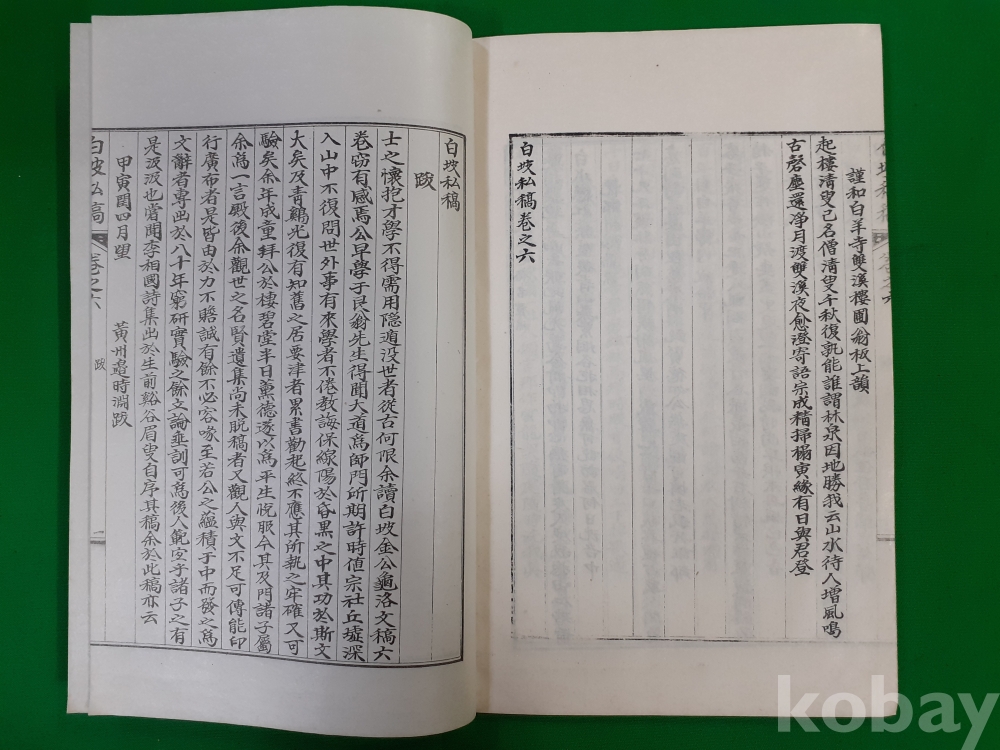 謹和白羊寺雙溪樓圃翁板上韻
起樓淸叟已名僧淸叟千秋復孰能誰謂林泉因地勝我云山水待人增風鳴
古磬塵還净月渡雙溪夜愈澄寄語宗成精掃榻寅緣有日與君登
白坡私稿卷之六
白坡私稿
跋
士之懷抱才學不得需用隱遁沒世者從古何限余讀白坡金公龜洛文稿六
卷窃有感焉公早學于艮翁先生得聞大道爲師門所期許時値宗社丘墟深
入山中不復問世外事有來學者不倦敎誨保線陽於昏黑之中其功於斯文
大矣及靑鷗光復有知舊之居要津者累書勸起終不應其所執之牢確又可
驗矣余年成童拜公於棲碧堂半日薰德遂以爲平生悅服今其及門諸子屬
余爲一言殿後余觀世之名賢遺集尙未脫稿者又觀人與文不足可傳能印
行廣布者是皆由於力不贍誠有餘不必容喙至若公之蘊積于中而發之爲
文辭者專出於八十年窮硏實驗之餘立論垂訓可爲後人範宜乎諸子之有
是汲汲也嘗聞李相國詩集出於生前谿谷眉叟自序其稿余於此稿亦云
甲寅閏四月望 黃州邉時淵跋
白坡私稿 卷之六 跋 一
kobay